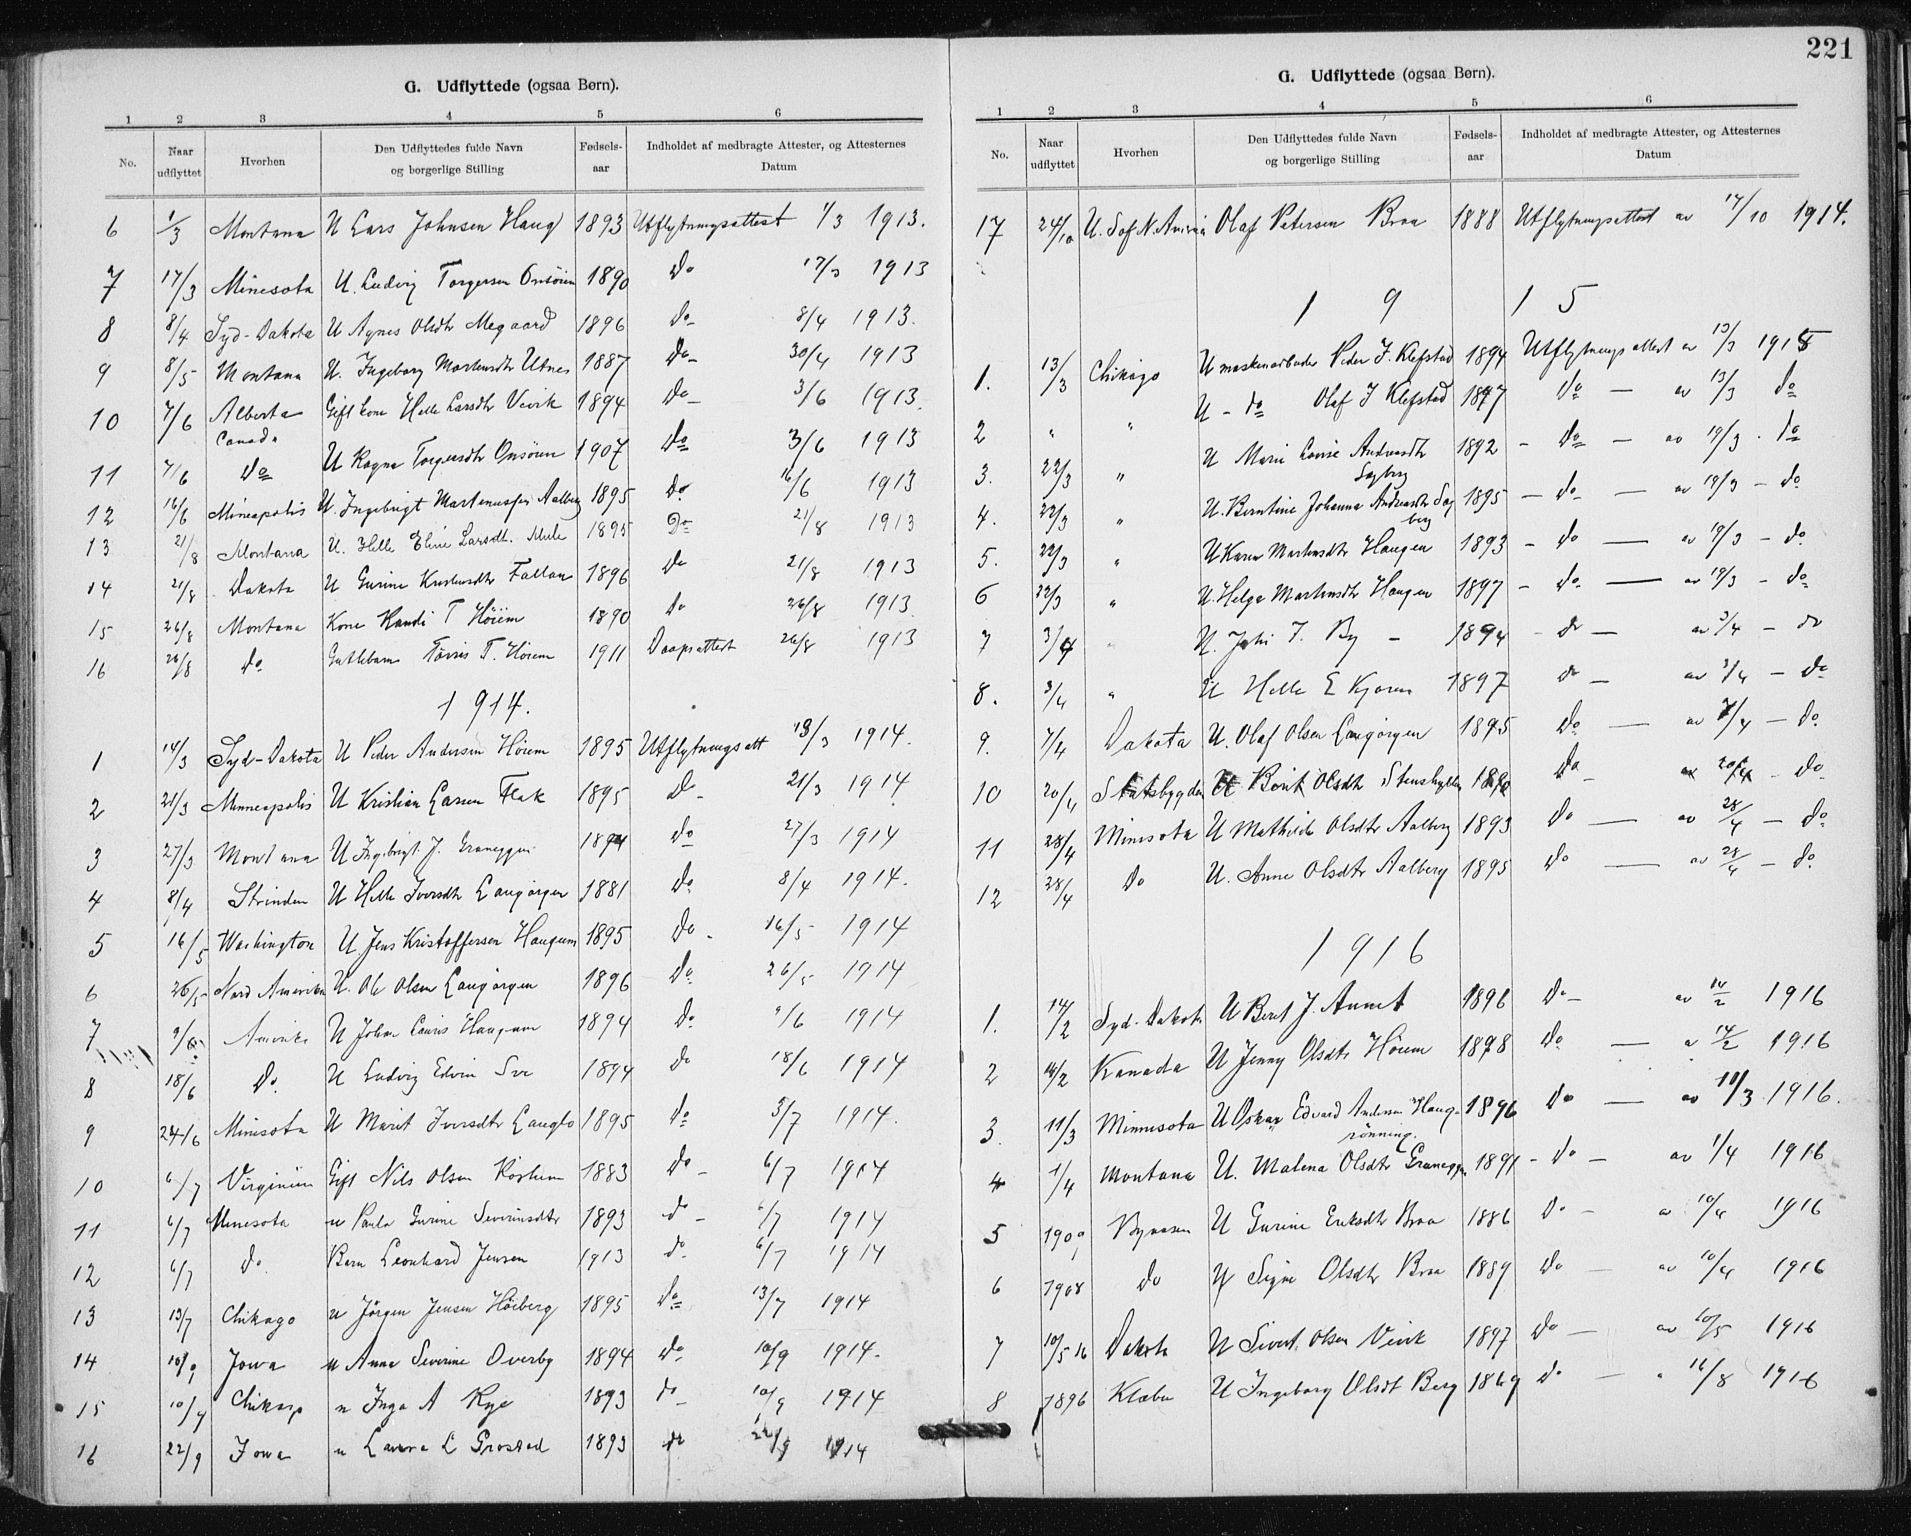 G. Udflyttede (ogsaa Børn).
1 2 3 4 5 6
No. Naar udflyttet Hvorhen Den Udflyttedes fulde Navn og borgerlige Stilling Fødsels-aar Indholdet af medbragte Attester, og Attesternes Datum
6 1/3 Montana U Lars Johnsen Haug 1893 Utflytningsattest 1/3 1913.
7 17/3 Minesota U. Ludvig Torgersen Onsöien 1890 Do 17/3 1913
8 8/4 Syd-Dakota U Agnes Olsdtr Megaard 1896 Do 8/4 1913.
9 8/5 Montana U. Ingeborg Martensdtr Utnes 1887 Do 30/4 1913
10 7/6 Alberta Gift kone Helle Larsdtr Veivik 1894 Do 3/6 1913.
Canada
11 7/6 Do U Ragna Torgersdtr Onsöien 1907 Do 3/6 1913
12 16/6 Mineapolis U. Ingebrigt Martenussen Aalberg 1895 Do 16/6 1913
13 21/8 Montana U. Helle Eline Larsdt. Mule 1895 Do 21/8 1913
14 21/8 Dakota U Gurine 1896 Do 21/8 1913
15 26/8 Montana Kone Randi T Höiem 1890 do 26/8 1913
16 26/8 Do Guttebarn T. Höiem 1911 Daapsattest 26/8 1913
1914.
1 14/3 Syd-Dakota U Peder Andersen Höiem 1895 Utflytningsatt 13/3 1914.
2 21/3 Minneapolis U Kristian Larsen Flak 1895 Do 21/3 1914
3 27/3 Montana U Ingebrigt J. Graneggen 1894 Do 27/3 1914
4 8/4 Strinden U Helle Iversdtr Langörgen 1881 Do 8/4 1914.
5 16/5 Washington U. Jens Kristoffersen Haugum 1895 Do 16/5 1914
6 26/5 Nord Amerika U. Ole Olsen Langörgen 1896 Do 26/5 1914
7 Amerika U Johan Lauris Haugum 1894 Do /6 1914
8 18/6 Do. U Ludvig Edvin 1894 do 18/6 1914
9 24/6 Minesota U Marit Iversdtr Langlo 1895 do 3/7 1914.
10 6/7 Virginien Gift Nils Olsen 1883 Do 6/7 1914
11 6/7 Minesota u Paula Gurine Severinsdtr 1893 do 6/7 1914
12 6/7 Do. Barn Leonhard Jensen 1913 do 6/7 1914
13 13/7 Chikago u Jörgen Jensen Höiberg 1895 Do 13/7 1914
14 10/9 Jowa u Anna Severine Overby 1894 Do 10/9 1914.
15 10/9 Chikago u Inga A Rye 1893 do 10/9 1914
16 22/9 Jowa u Laura L 1893 do 22/9 1914
221
G. Udflyttede (ogsaa Børn).
1 2 3 4 5 6
No. Naar udflyttet Hvorhen Den Udflyttedes fulde Navn og borgerlige Stilling Fødsels-aar Indholdet af medbragte Attester, og Attesternes Datum
17 24/10 U. S of N. Amerika Olaf Petersen Braa 1888 Utflytningsattest av 17/10 1914.
1915
1. 13/3 Chikago U maskinarbeider Peder J. Klefstad 1894 Utflytningsattest av 13/3 1915
2 " " U - do Olaf J Klefstad 1897 do — av 13/3 do
3. 22/3 " U Marie Lovise Andreasdtr 1892 - Do — av 19/3 . do
Sagberg
4. 22/3 " U. Berntine Johanna Andreasdtr Sag 1895 — do — av 19/3 — do
berg
5. 22/3 " U Karen Martensdtr Haugen 1893 - do — av 19/3 - do
6 22/3 " U. Helga Martensdtr Haugen 1897 - do — av 19/3 - do
7 3/4 " U. J. By - 1894 - do — av 3/4 - do
8. 3/4 " U Helle E Kjoren 1897 do — av 3/4 — do
9. 7/4 Dakota U. Olaf Olsen Langörgen 1895 Do — av 7/4 — do
10 20/4 Stadsbygden U Berit Olsdtr Stenshyllen Do av 20/4 - do
11 28/4 Minisota U Mathilde Olsdtr Aalberg 1893 do — av 28/4 — do
12 28/4 Do U. Anne Olsdtr Aalberg 1895 do — av 28/4 — do
1916
1. 14/2 Syd-Dakota U Beret J. Aunet 1896 Do — av 14/2 1916
2 14/2 Kanada U Jenny Olsdtr Höiem 1898 do — a 14/2 1916
3. 11/3 Minnesota U Oskar Edvard Andersen Haug- 1896 do — av 11/3 1916.
rönning.
4 1/4 Montana U. Malena Olsdtr Graneggen 1891 - do — av 1/4 1916
5 1900 Bynesen U Gurine Eriksdtr Braa 1886 do — a 10/4 1916
6 1908 Do U Signe Olsdtr Braa 1889 Do — av 10/4 1916
7 10/5 16 Dakota U Sivert Olsen Veivik 1897 Do — av 10/5 1916
8 1896 Klæbu U Ingeborg Olsdt Berg 1869 do — " 16/8 1916